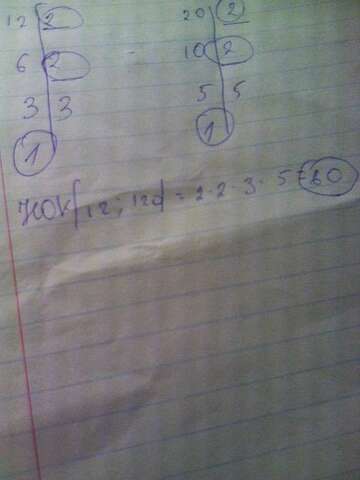 12 2 20 2
6 2 10 2
3 3 5 5
1 1
НОК(12; 120) = 2·2·3·5 = 60